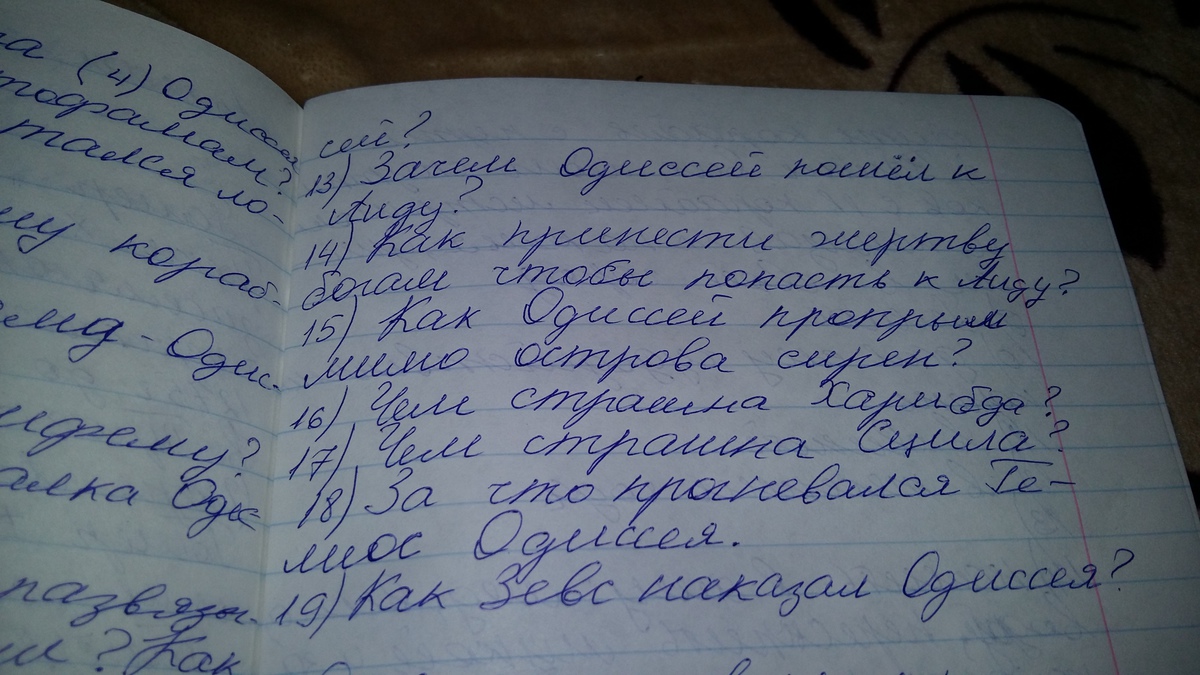 на (4) Одиссея
тофагам?
тался ло-
му кораб-
Одис-
ифему?
алка Оди
развязы-
? Как
сей?
13) Зачем Одиссей пошёл к
Аиду?
14) Как принести жертву
богам чтобы попасть к Аиду?
15) Как Одиссей пропрыл
мимо острова сирен?
16) Чем страшна Харибда?
17) Чем страшна Сцила?
18) За что прогневался Ге-
лиос Одиссея.
19) Как Зевс наказал Одиссея?